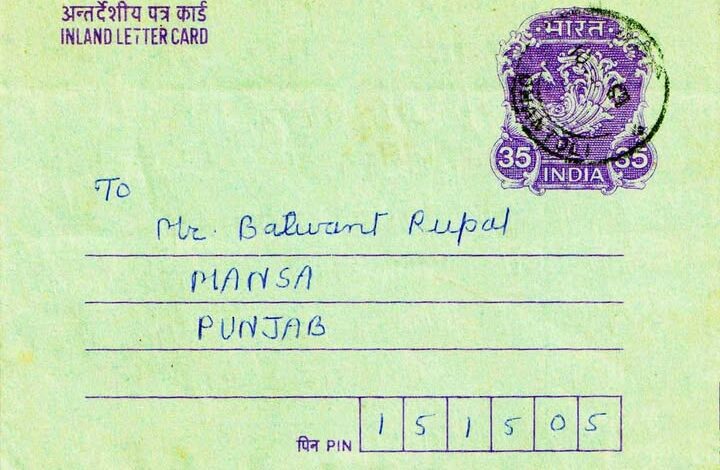 अन्तर्देशीय पत्र कार्ड
INLAND LETTER CARD
भारत
35 35
INDIA
To
Mr. Balwant Rupal
MANSA
PUNJAB
पिन PIN 1 5 1 5 0 5